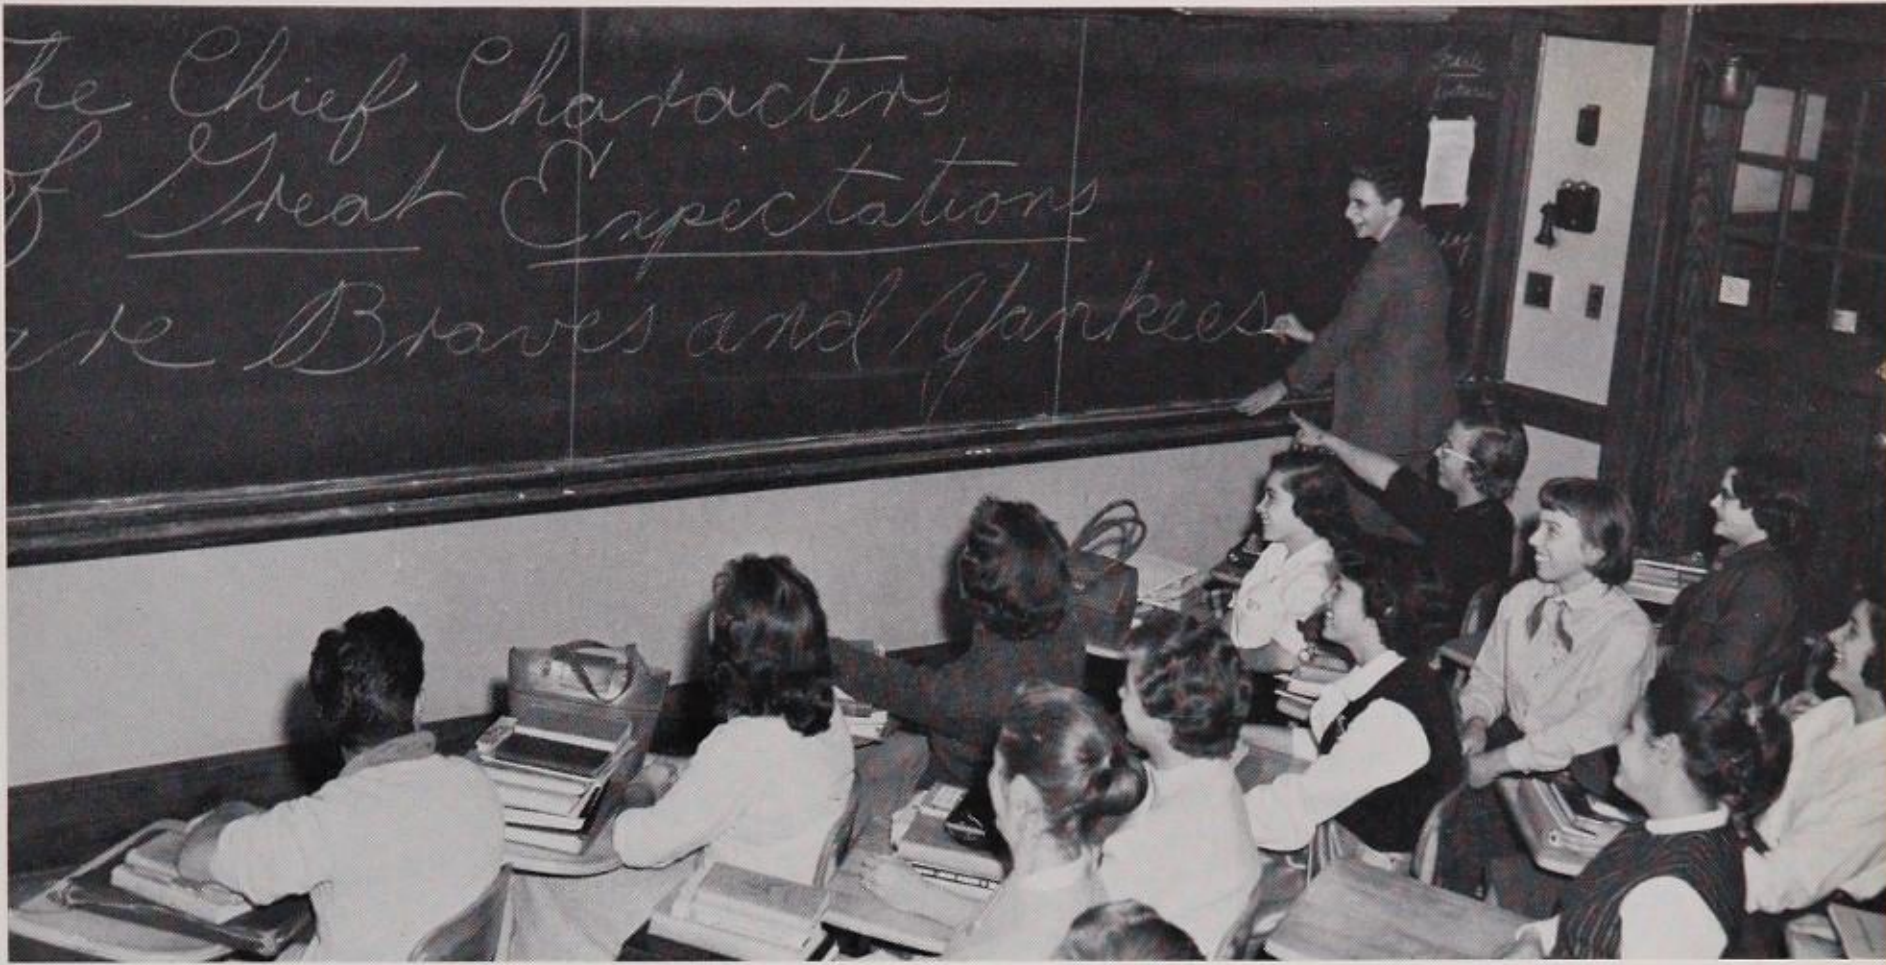 The Chief Characters
of Great Expectations
are Braves and Yankees